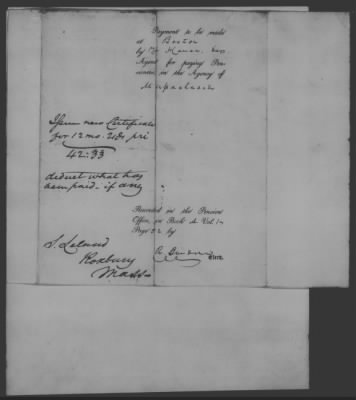 Payment to be made
at Boston
by
Agent for paying Pen-
sioners in the Agency of
Massachusets
Issue new Certificate
for 12 mo. 21 ds pri
42:33
deduct what has
been paid - if any
Recorded in the Pension
Office in Book A Vol. 1
Page 52 by
Clerk.
S. Leland
Roxbury
Mass